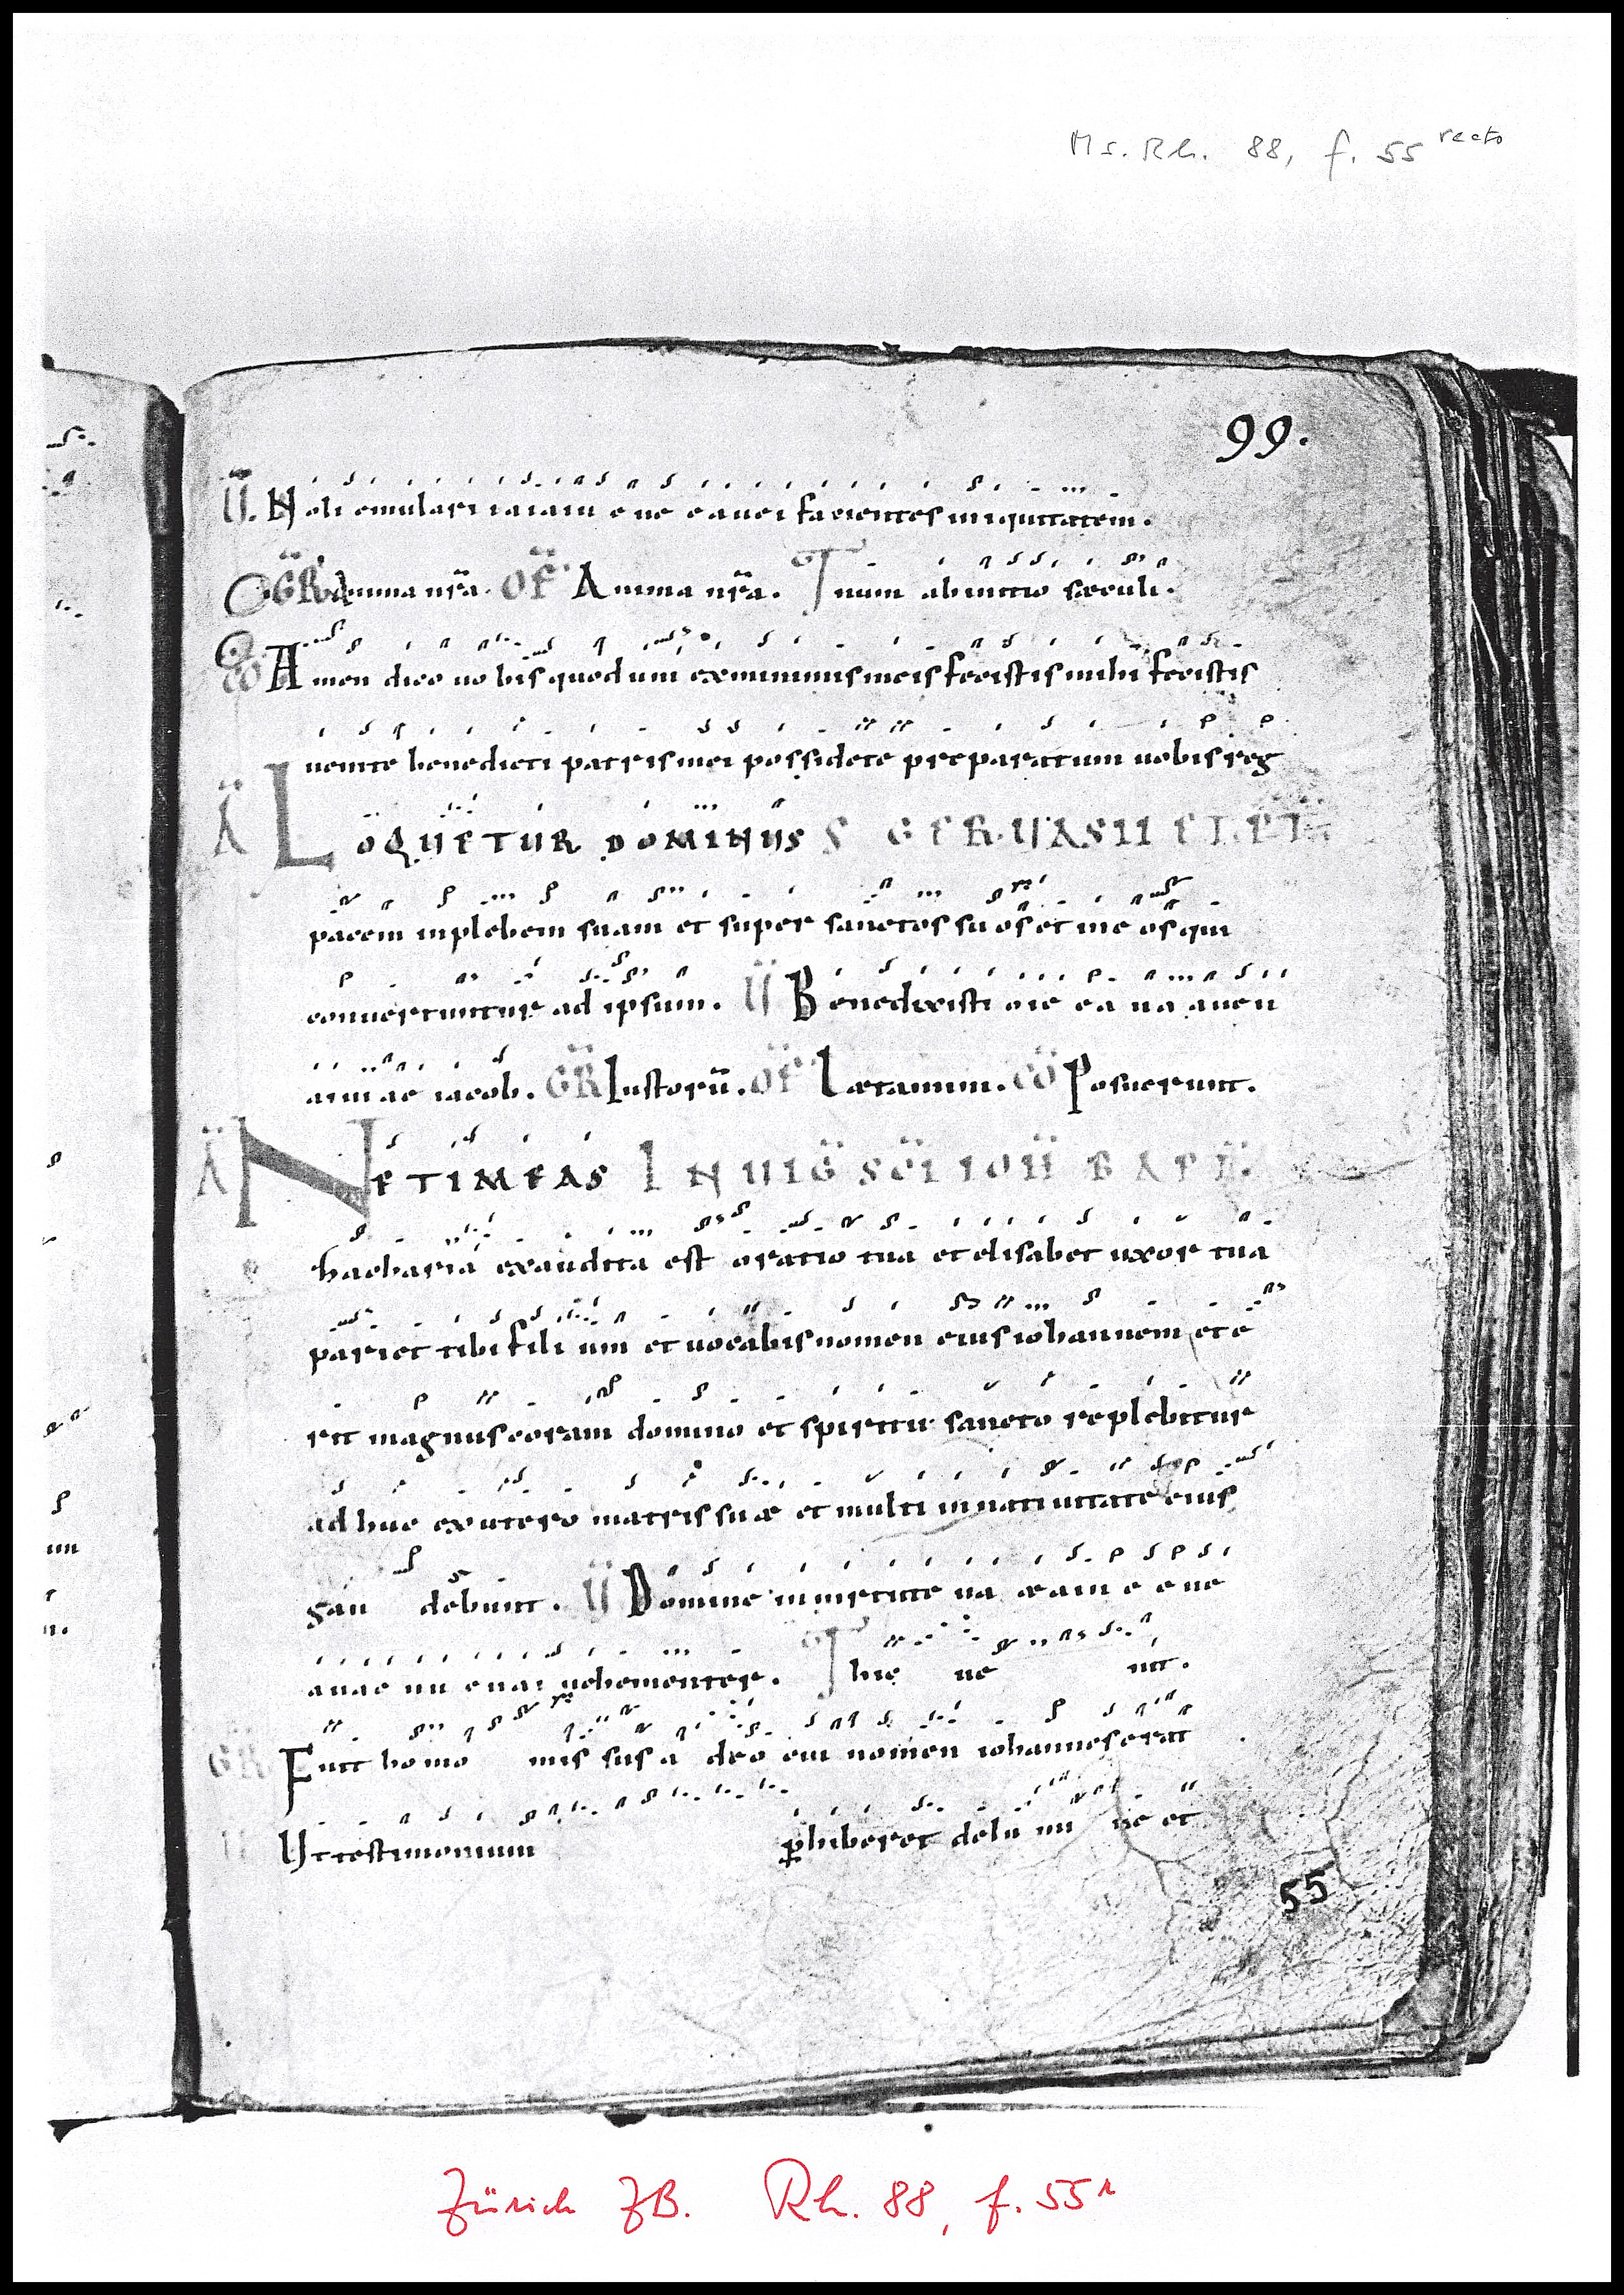 Ms. Rh. 88, f. 55 recto
99.
V̄. Noli emulari ia iam e ne e a uei facientes iniquitatem.
GR Anima nr̄a. OF Anima nr̄a. Tnum ab initio sæculi.
CO Amen dico uobis quod uni ex minimis meis fecistis mihi fecistis
uenite benedicti patris mei possidete preparatum uobis reg
Ā LOQUETUR DOMINUS S GERUASII
pacem in plebem suam et super sanctos suos et in eos qui
conuertuntur ad ipsum. V Benedixisti oie ea na auen
aim ae iacob. GR Iustorū. OF Lætamini. CO Posuerunt.
Ā NE TIMEAS IN UIG SCI IOH BAPT
hacharia exaudita est oratio tua et elisabet uxor tua
pariet tibi filium et uocabis nomen eius iohannem et e
rit magnus coram domino et spiritu sancto replebitur
ad huc ex utero matris suæ et multi in natiuitate eius
gau debunt. V Domine in uirtute ua æ am e e ue
auae un euai uehementer. T hic ue nit.
GR Fuit homo mis sus a deo cui nomen iohannes erat
V Ut testimonium ꝑhiberet de lu mi ne et
55
Zürich ZB. Rh. 88, f. 55r